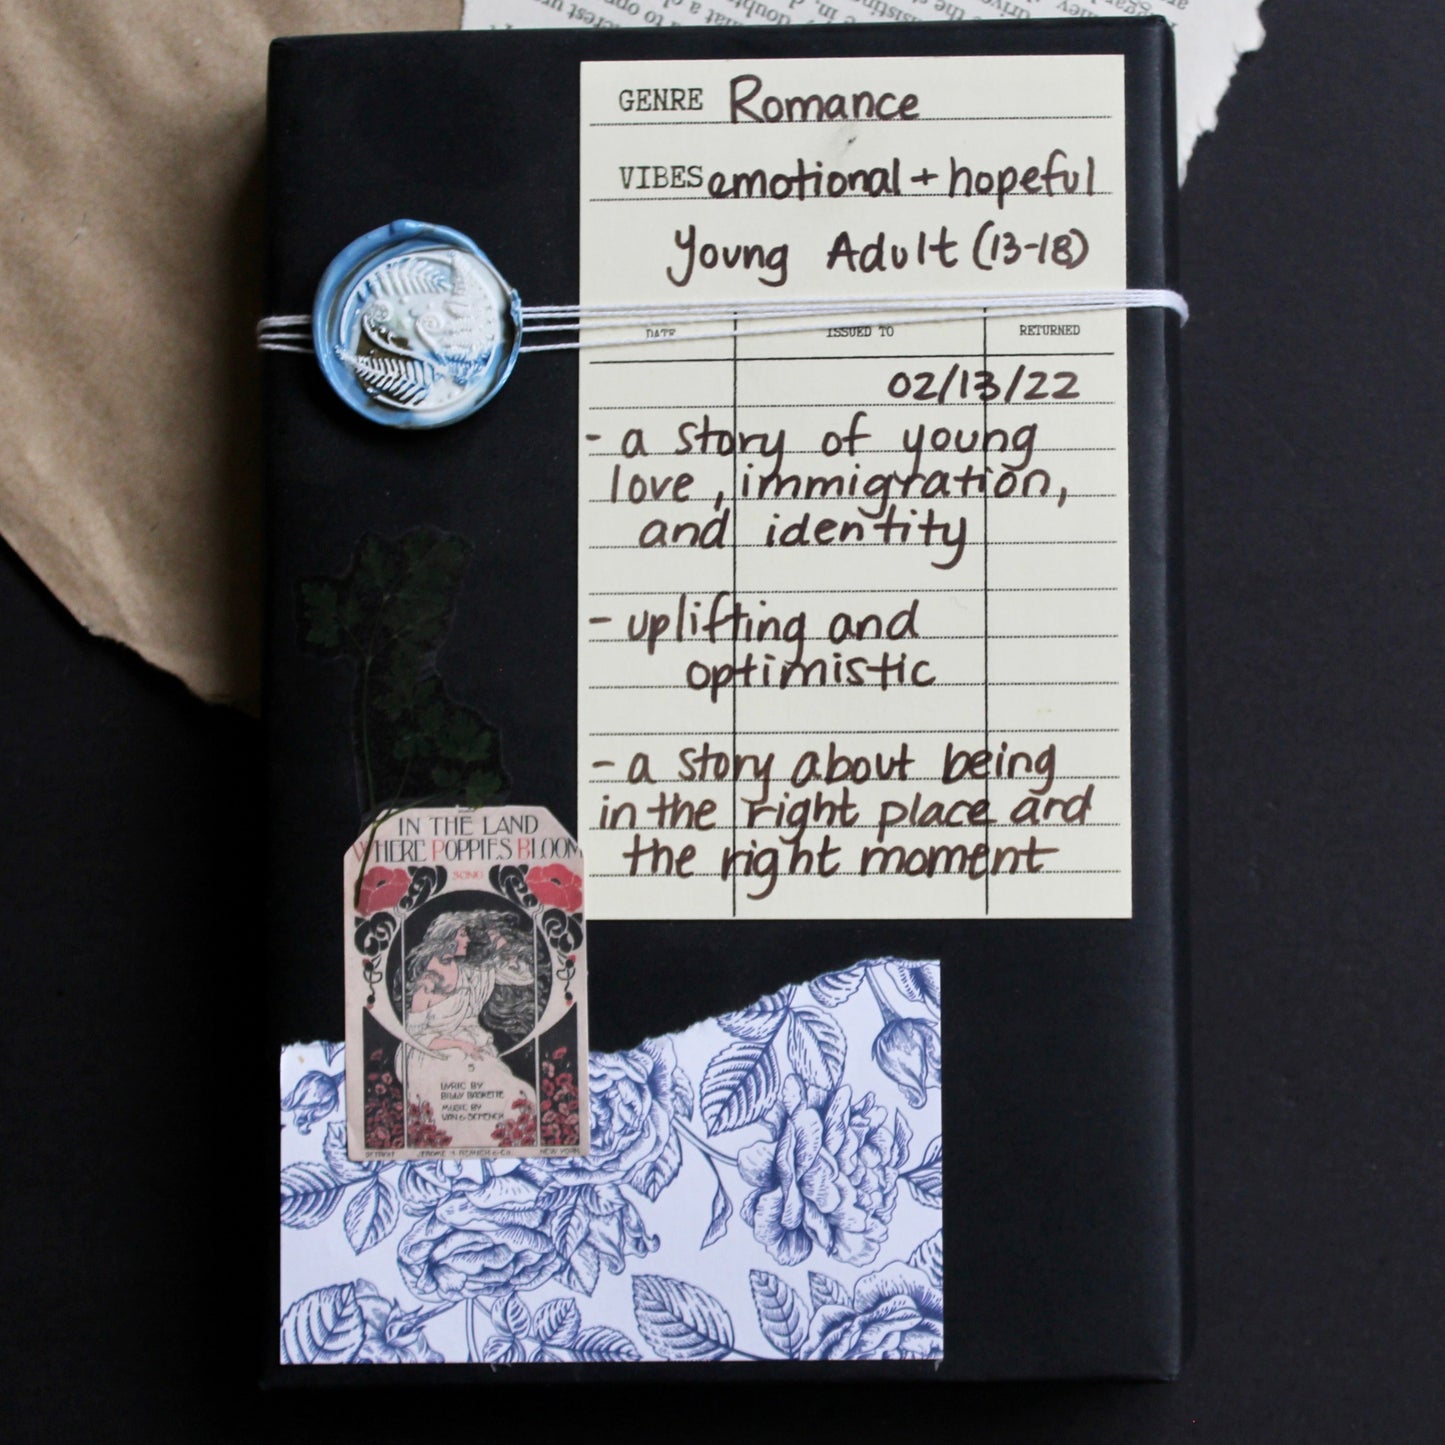 GENRE Romance
VIBES emotional + hopeful
Young Adult (13-18)
DATE ISSUED TO RETURNED
02/13/22
- a story of young
love, immigration,
and identity
- uplifting and
optimistic
- a story about being
in the right place and
the right moment
IN THE LAND
WHERE POPPIES BLOOM
SONG
5
LYRIC BY
BILLY BASKETTE
MUSIC BY
DETROIT JEROME H. REMICK & Co. NEW YORK